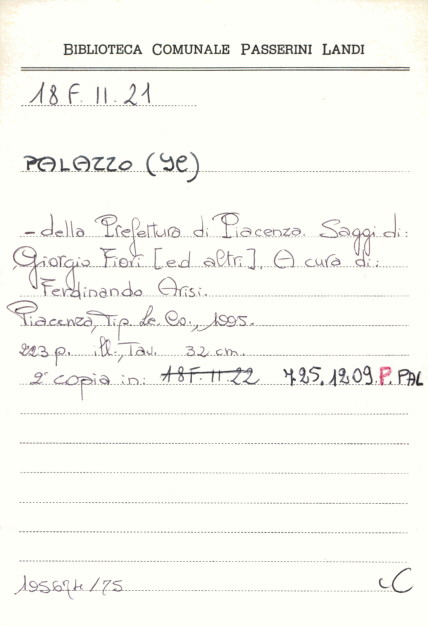 BIBLIOTECA COMUNALE PASSERINI LANDI
18 F. II. 21
PALAZZO (IL)
- della Prefettura di Piacenza. Saggi di:
Giorgio Fiori [ed altri]. A cura di:
Ferdinando Arisi.
Piacenza, Tip. Le. Co., 1995.
223 p. ill., Tav. 32 cm.
2ª copia in: 18 F. II. 22 725.1209.P. PAL
195674/75